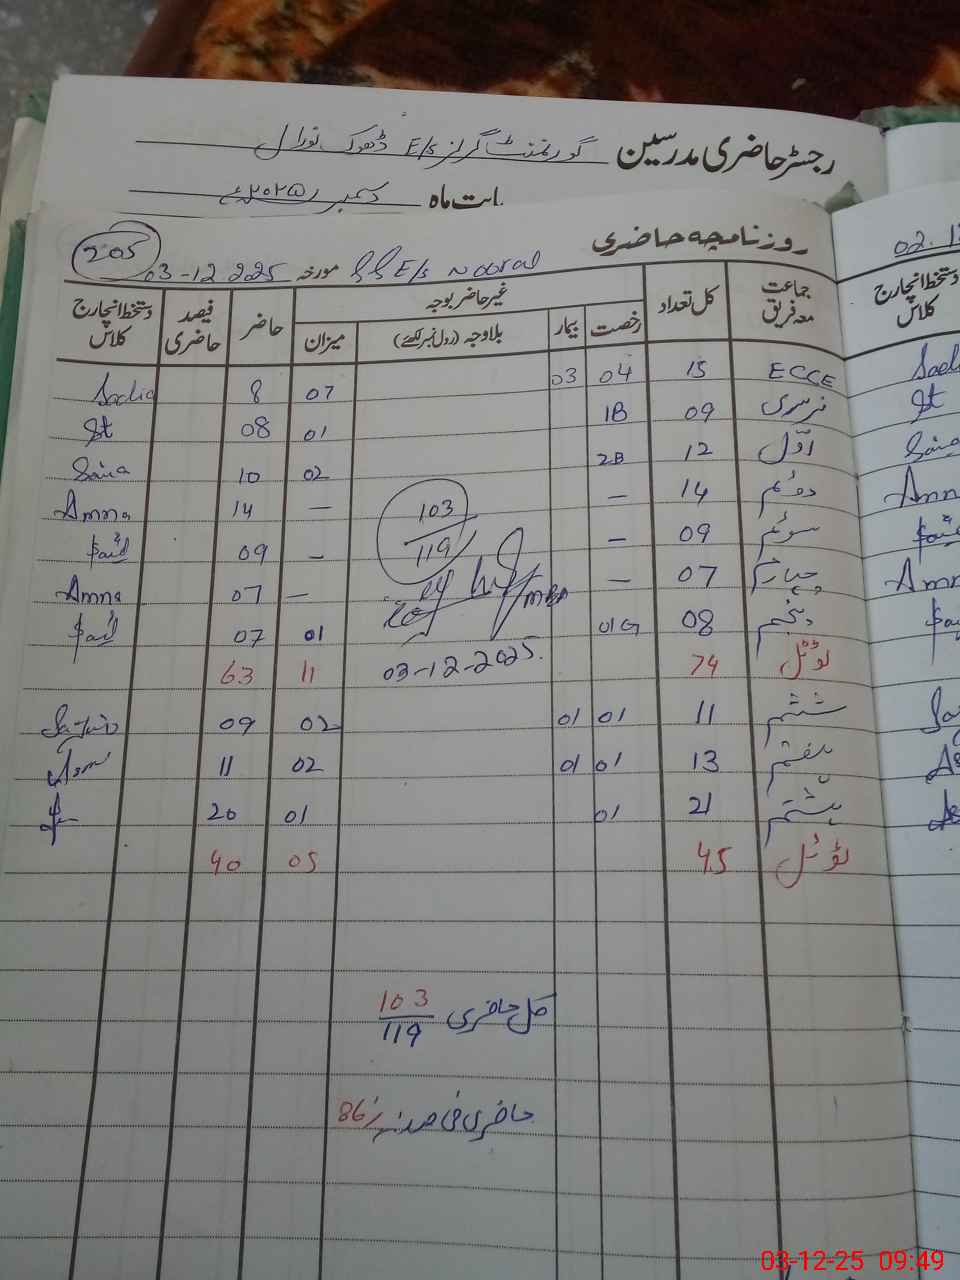 رجسٹر حاضری مدرسین گورنمنٹ گرلز E/s ڈھوک نورال
بابت ماہ دسمبر ۲۰۲۵ء
روزنامچہ حاضری
205
مورخہ 03-12-2025 GG E/s Nooral 02.12
جماعت معہ فریق کل تعداد غیر حاضر بوجہ حاضر فیصد حاضری دستخط انچارج کلاس دستخط انچارج کلاس
رخصت بیمار بلاوجہ (رول نمبر لکھئے) میزان
ECCE 15 04 03 07 8 Sadia
نرسری 09 1B 01 08 St St
اوّل 12 2B 02 10 Saira
دوئم 14 – – 14 Amna Amn
سوئم 09 – – 09
چہارم 07 – – 07 Amna Amn
پنجم 08 01G 01 07
ٹوٹل 74 11 63
103
119
03-12-2025.
ششم 11 01 01 02 09
ہفتم 13 01 01 02 11
ہشتم 21 01 01 20
ٹوٹل 45 05 40
کل حاضری 103
119
حاضری فی صد 86
03-12-25 09:49